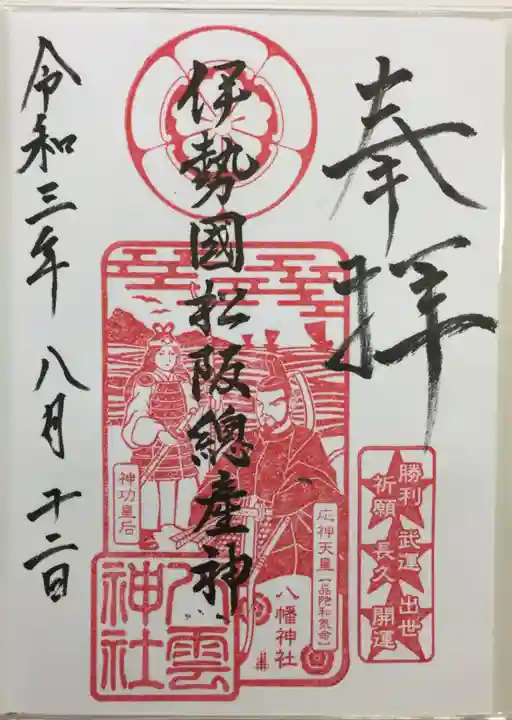 奉拝
伊勢國松阪總産神
令和三年八月十二日
神功皇后
応神天皇【品陀和気命】
八幡神社
八雲神社
勝利祈願
武運長久
出世開運